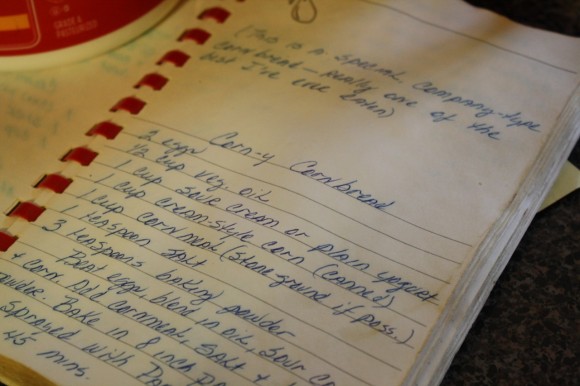 GRADE A
PASTEURIZED
(This is a special, company-type
cornbread — really one of the
best I've ever eaten)
Corn-y Cornbread
2 eggs
1/2 cup veg. oil
1 cup sour cream or plain yogurt
1 cup cream-style corn (canned)
1 cup cornmeal (stone ground if poss.)
1 teaspoon salt
3 teaspoons baking powder
Beat eggs, blend in oil, sour cr
+ corn. Add cornmeal, salt +
Bake in 8 inch
sprayed with
45 mins.